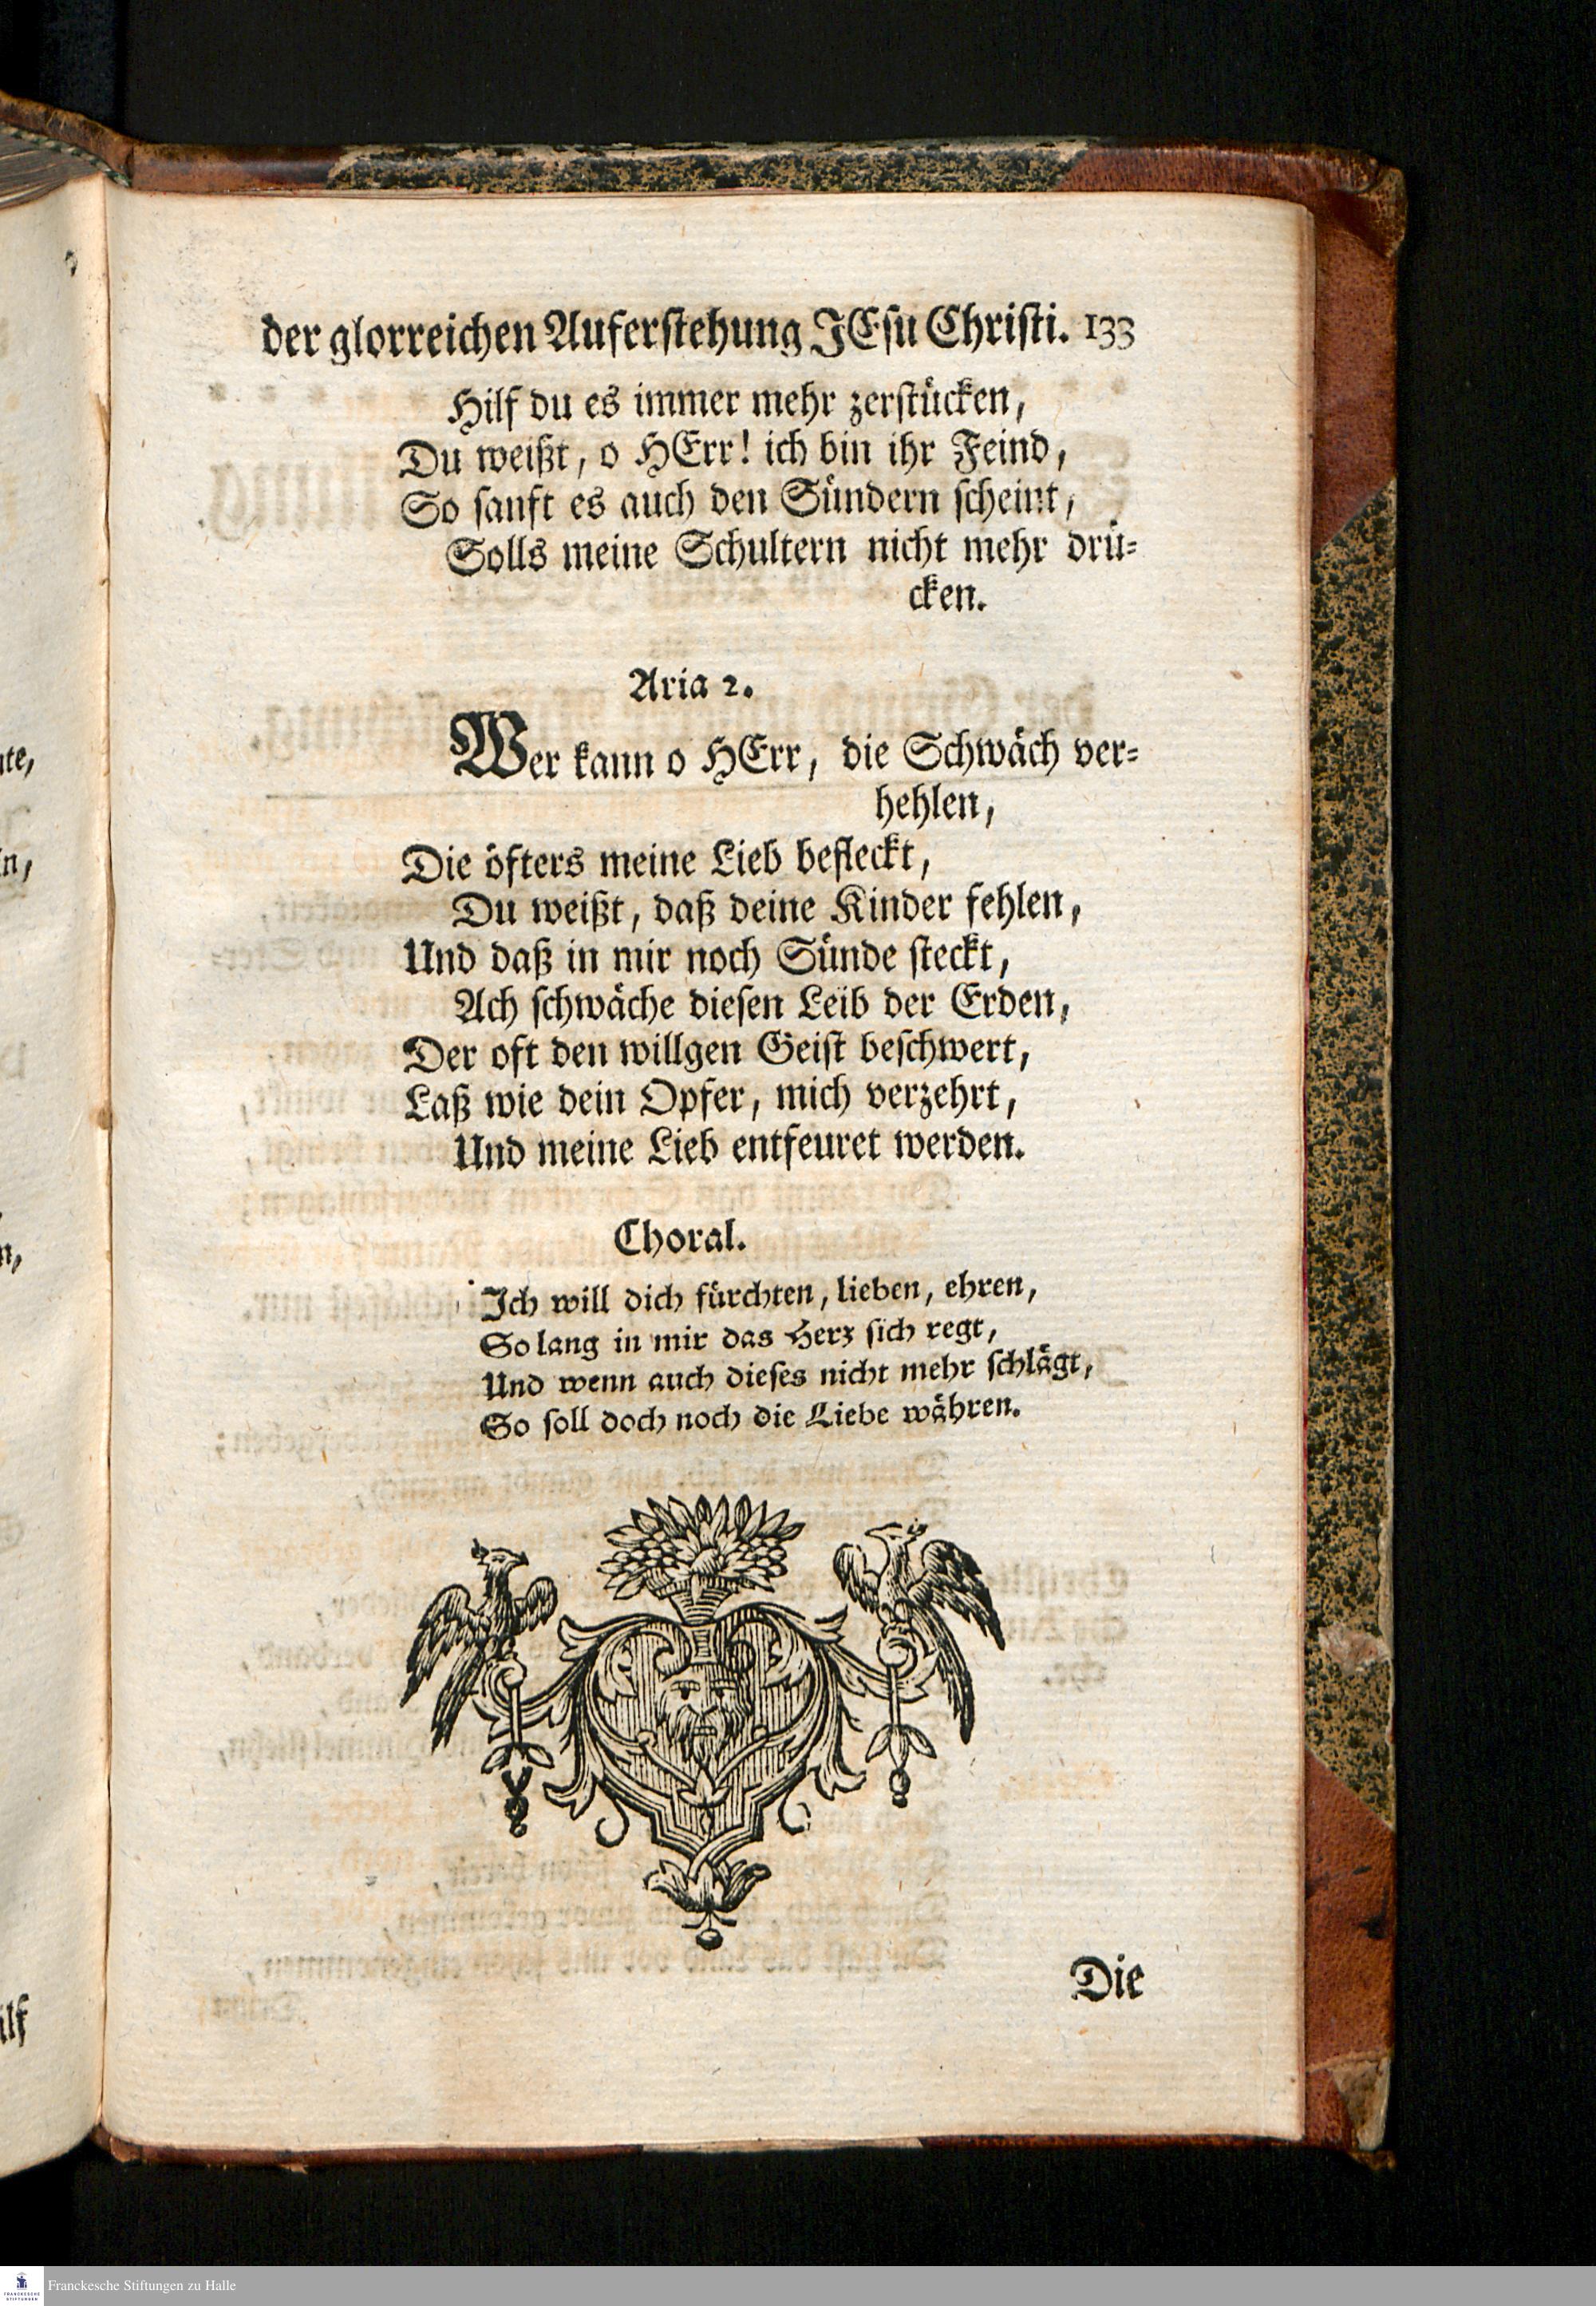 der glorreichen Auferstehung JEsu Christi. 133
Hilf du es immer mehr zerstücken,
Du weißt, o HErr! ich bin ihr Feind,
So sanft es auch den Sündern scheint,
Solls meine Schultern nicht mehr drü-
cken.
Aria 2.
Wer kann o HErr, die Schwäch ver-
hehlen,
Die öfters meine Lieb befleckt,
Du weißt, daß deine Kinder fehlen,
Und daß in mir noch Sünde steckt,
Ach schwäche diesen Leib der Erden,
Der oft den willgen Geist beschwert,
Laß wie dein Opfer, mich verzehrt,
Und meine Lieb entfeuret werden.
Choral.
Ich will dich fürchten, lieben, ehren,
So lang in mir das Herz sich regt,
Und wenn auch dieses nicht mehr schlägt,
So soll doch noch die Liebe währen.
Die
Franckesche Stiftungen zu Halle